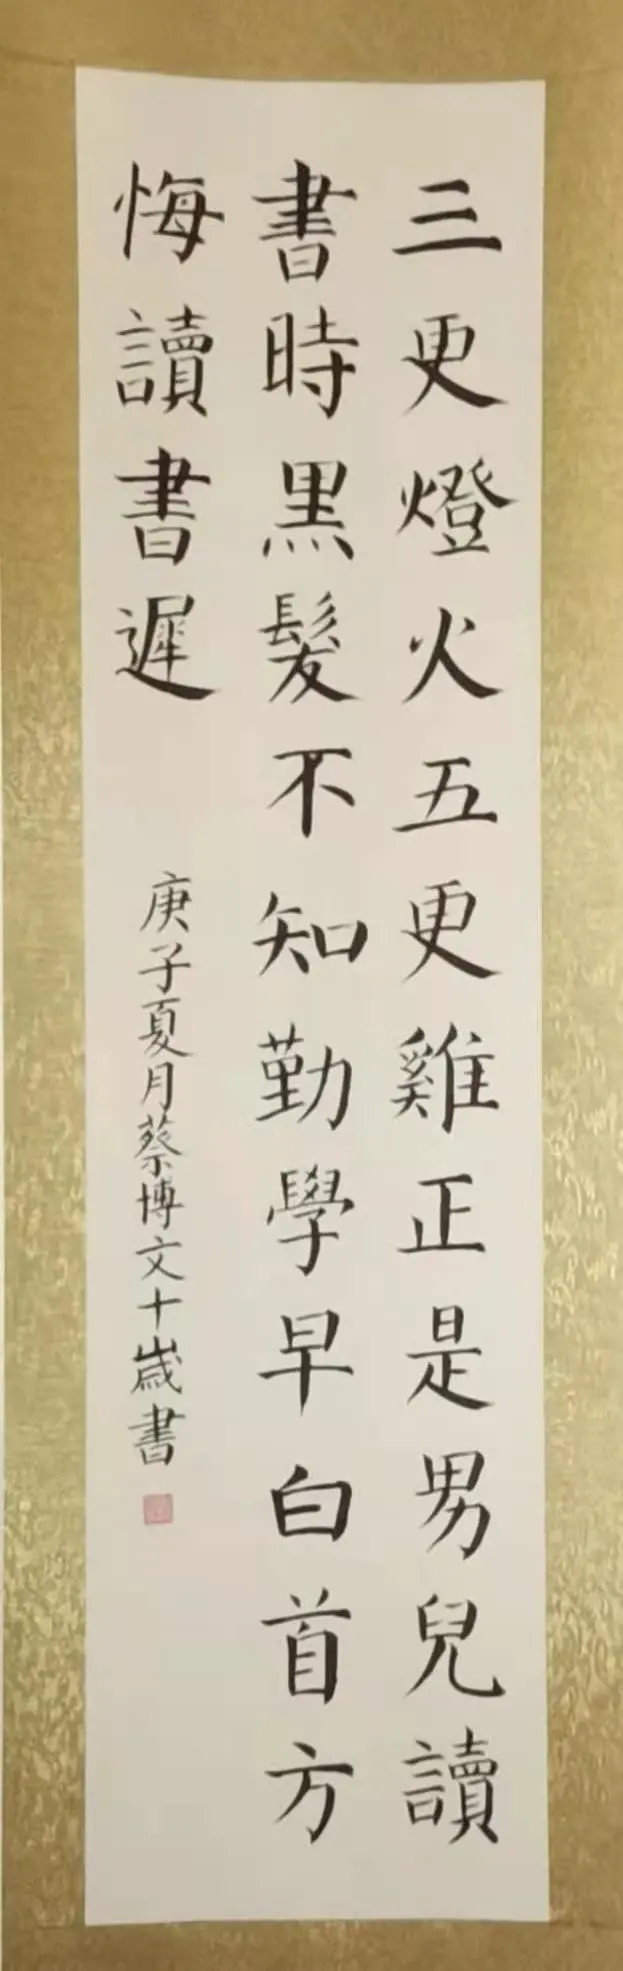 三更燈火五更雞正是男兒讀
書時黑髮不知勤學早白首方
悔讀書遲
庚子夏月蔡博文十歲書